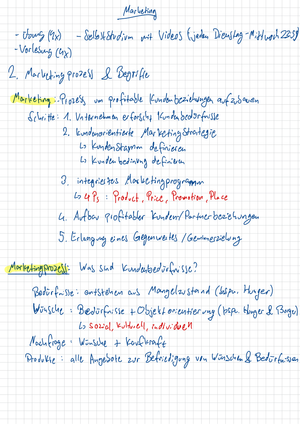 Marketing
- Übung (9x) - Selbststudium mit Videos (jeden Dienstag-Mittwoch
- Vorlesung (4x)
2. Marketingprozess & Begriffe
Marketing: Prozess um profitable Kundenbeziehungen aufzubauen
Schritte: 1. Unternehmen erforscht Kundenbedürfnisse
2. kundenorientierte Marketingstrategie
↳ Kundenstamm definieren
↳ Kundenbedinung definieren
3. integriertes Marketingprogramm
↳ 4 Ps: Product, Price, Promotion, Place
4. Aufbau profitabler Kunden/Partnerbeziehungen
5. Erlangung eines Gegenwertes / Gewinnerzielung
Marketingprozess: Was sind Kundenbedürfnisse?
Bedürfnisse: entstehen aus Mangelzustand (bspw. Hunger)
Wünsche: Bedürfnisse + Objektorientierung (bspw. Hunger & Burger)
↳ sozial, kulturell, individuell
Nachfrage: Wünsche + Kaufkraft
Produkte: alle Angebote zur Befriedigung von Wünschen & Bedürfnissen